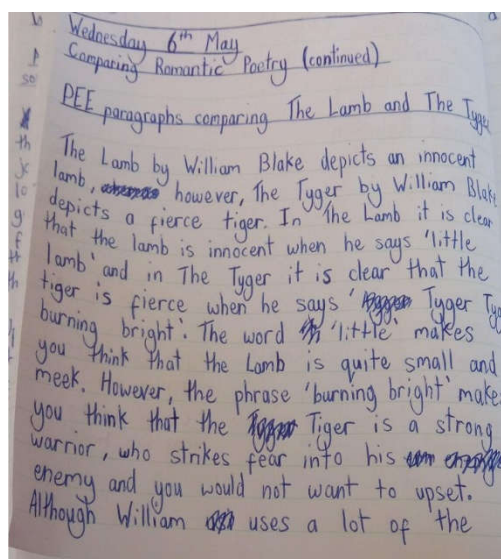 Wednesday 6th May
Comparing Romantic Poetry (continued)
PEE paragraphs comparing The Lamb and The Tyger
The Lamb by William Blake depicts an innocent
lamb, however, The Tyger by William Blake
depicts a fierce tiger. In The Lamb it is clear
that the lamb is innocent when he says 'little
lamb' and in The Tyger it is clear that the
tiger is fierce when he says ' Tyger
burning bright'. The word 'little' makes
you think that the Lamb is quite small and
meek. However, the phrase 'burning bright' makes
you think that the Tiger is a strong
warrior, who strikes fear into his
enemy and you would not want to upset.
Although William uses a lot of the